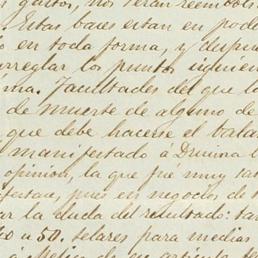 gastos, nos serán reembols
Estas bases estan en pode
io en toda forma, y despue
rreglar los puntos siguien
ma. Facultades del que l
de muerte de alguno de
que debe hacerse el bala
manifestado á Druina l
opinion, la que fué muy
ifestar, pues en negocios de
ar la duda del resultado:
40 u 50. telares para medias